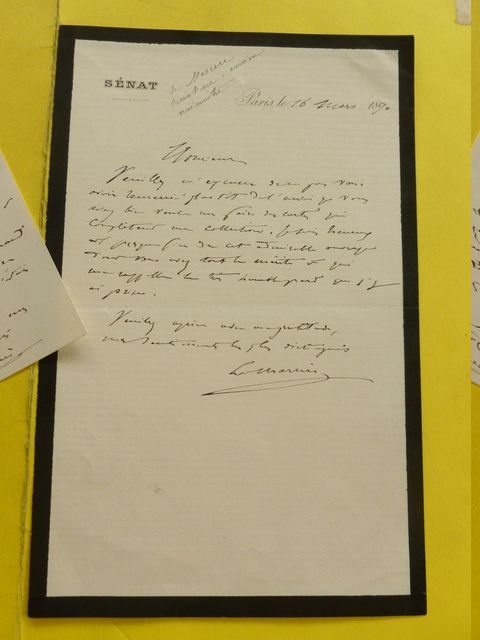 SÉNAT
de Marcère
sénateur ancien
ministre
Paris, le 16 Mars 1890
Monsieur
Veuillez m'excuser de ne pas vous
avoir remercié plus tôt de l'envoi que vous
avez bien voulu me faire des cartes qui
complètent ma collection. Je suis heureux
et
de cet admirable ouvrage
dont vous avez tout le mérite et qui
me rappelle le très
que j'y
ai prise.
Veuillez agréer avec ma gratitude,
mes sentiments les plus distingués
de Marcère